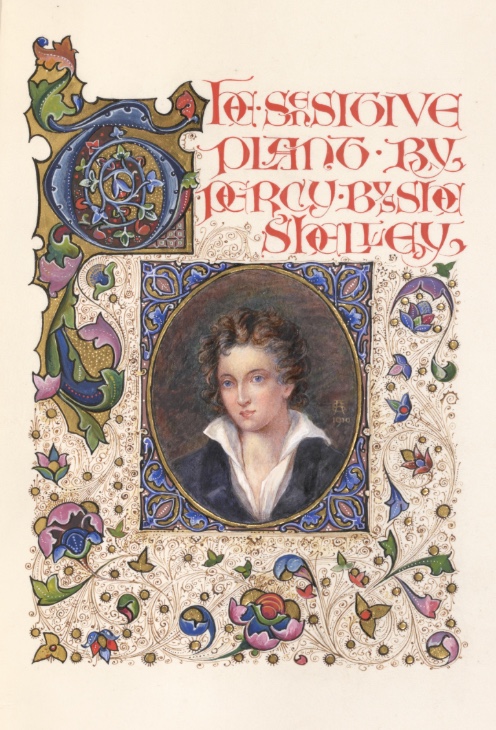 THE · SENSITIVE
PLANT · BY
PERCY · BYSSHE
SHELLEY